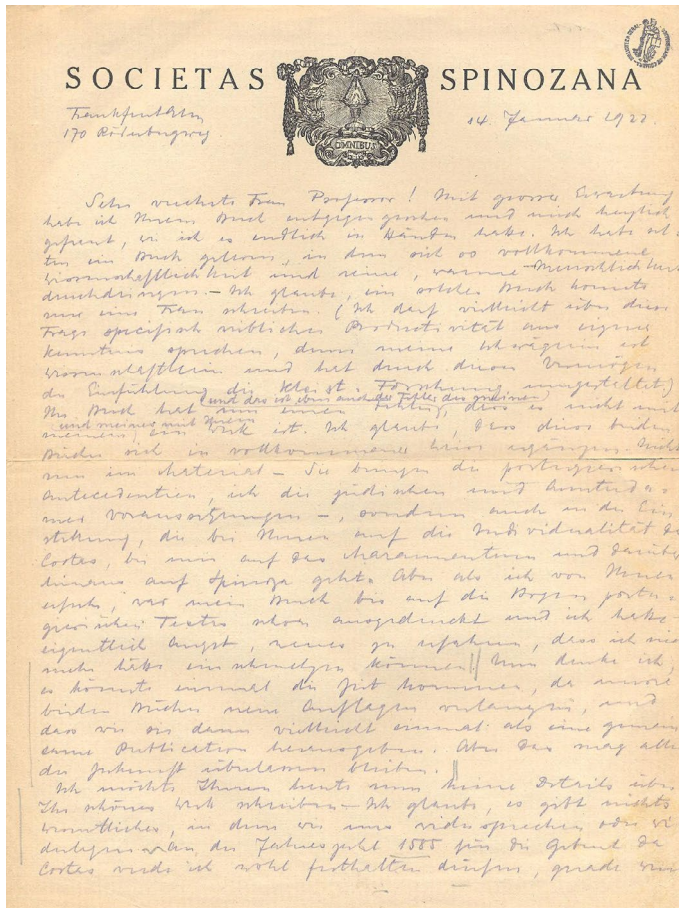 SOCIETAS SPINOZANA
OMNIBUS
Frankfurt a/M
14. Januar 1922.
170 Rödelbergweg
Sehr verehrte Frau Professor! Mit grosser Erwartung
habe ich Ihrem Buch entgegengesehen und mich herzlich
gefreut, wie ich es endlich in Händen habe. Ich habe sel
ten ein Buch gelesen, in dem sich so vollkommene
Wissenschaftlichkeit und reine, warme Menschlichkeit
durchdringen. – Ich glaube, ein solches Buch konnte
nur eine Frau schreiben. (Ich darf vielleicht über diese
Frage specifisch weiblicher Productivität aus eigner
Kenntnis sprechen, denn meine Schwägerin ist
Wissenschaftlerin und hat durch dieses Vermögen
der Einfühlung die Kleist-Forschung umgestaltet.)
(und das ist eben auch der Fehler des meinen)
Ihr Buch hat nur einen Fehler, dass es nicht mit
und meines mit Ihrem
meinem ein Werk ist. Ich glaube, dass diese beiden
Bücher sich in vollkommener Weise ergänzen. Nicht
nur im Material – Sie bringen die portugiesischen
Antecedentien, ich die jüdischen und Amsterda
mer Voraussetzungen –, sondern auch in der Ein
stellung, die bei Ihnen auf die Individualität da
Costas, bei mir auf das Marannentum und darüber
hinaus auf Spinoza geht. Aber als ich von Ihnen
erfuhr, war mein Buch bis auf die Bogen portu
giesischen Textes schon ausgedruckt und ich hatte
eigentlich Angst, neues zu erfahren, dass ich nicht
mehr hätte einschmelzen können. Nun denke ich,
es könnte einmal die Zeit kommen, da unsere
beiden Bücher neue Auflagen verlangen, und
dass wir sie dann vielleicht einmal als eine gemein
same Publication herausgeben. Aber das mag alles
der Zukunft überlassen bleiben.
Ich möchte Ihnen heute nun keine Details über
Ihr schönes Werk schreiben. – Ich glaube, es gibt nichts
wesentliches, in dem wir uns widersprechen oder wi
derlegen. An der Jahreszahl 1585 für die Geburt da
Costas werde ich wohl festhalten dürfen, gerade